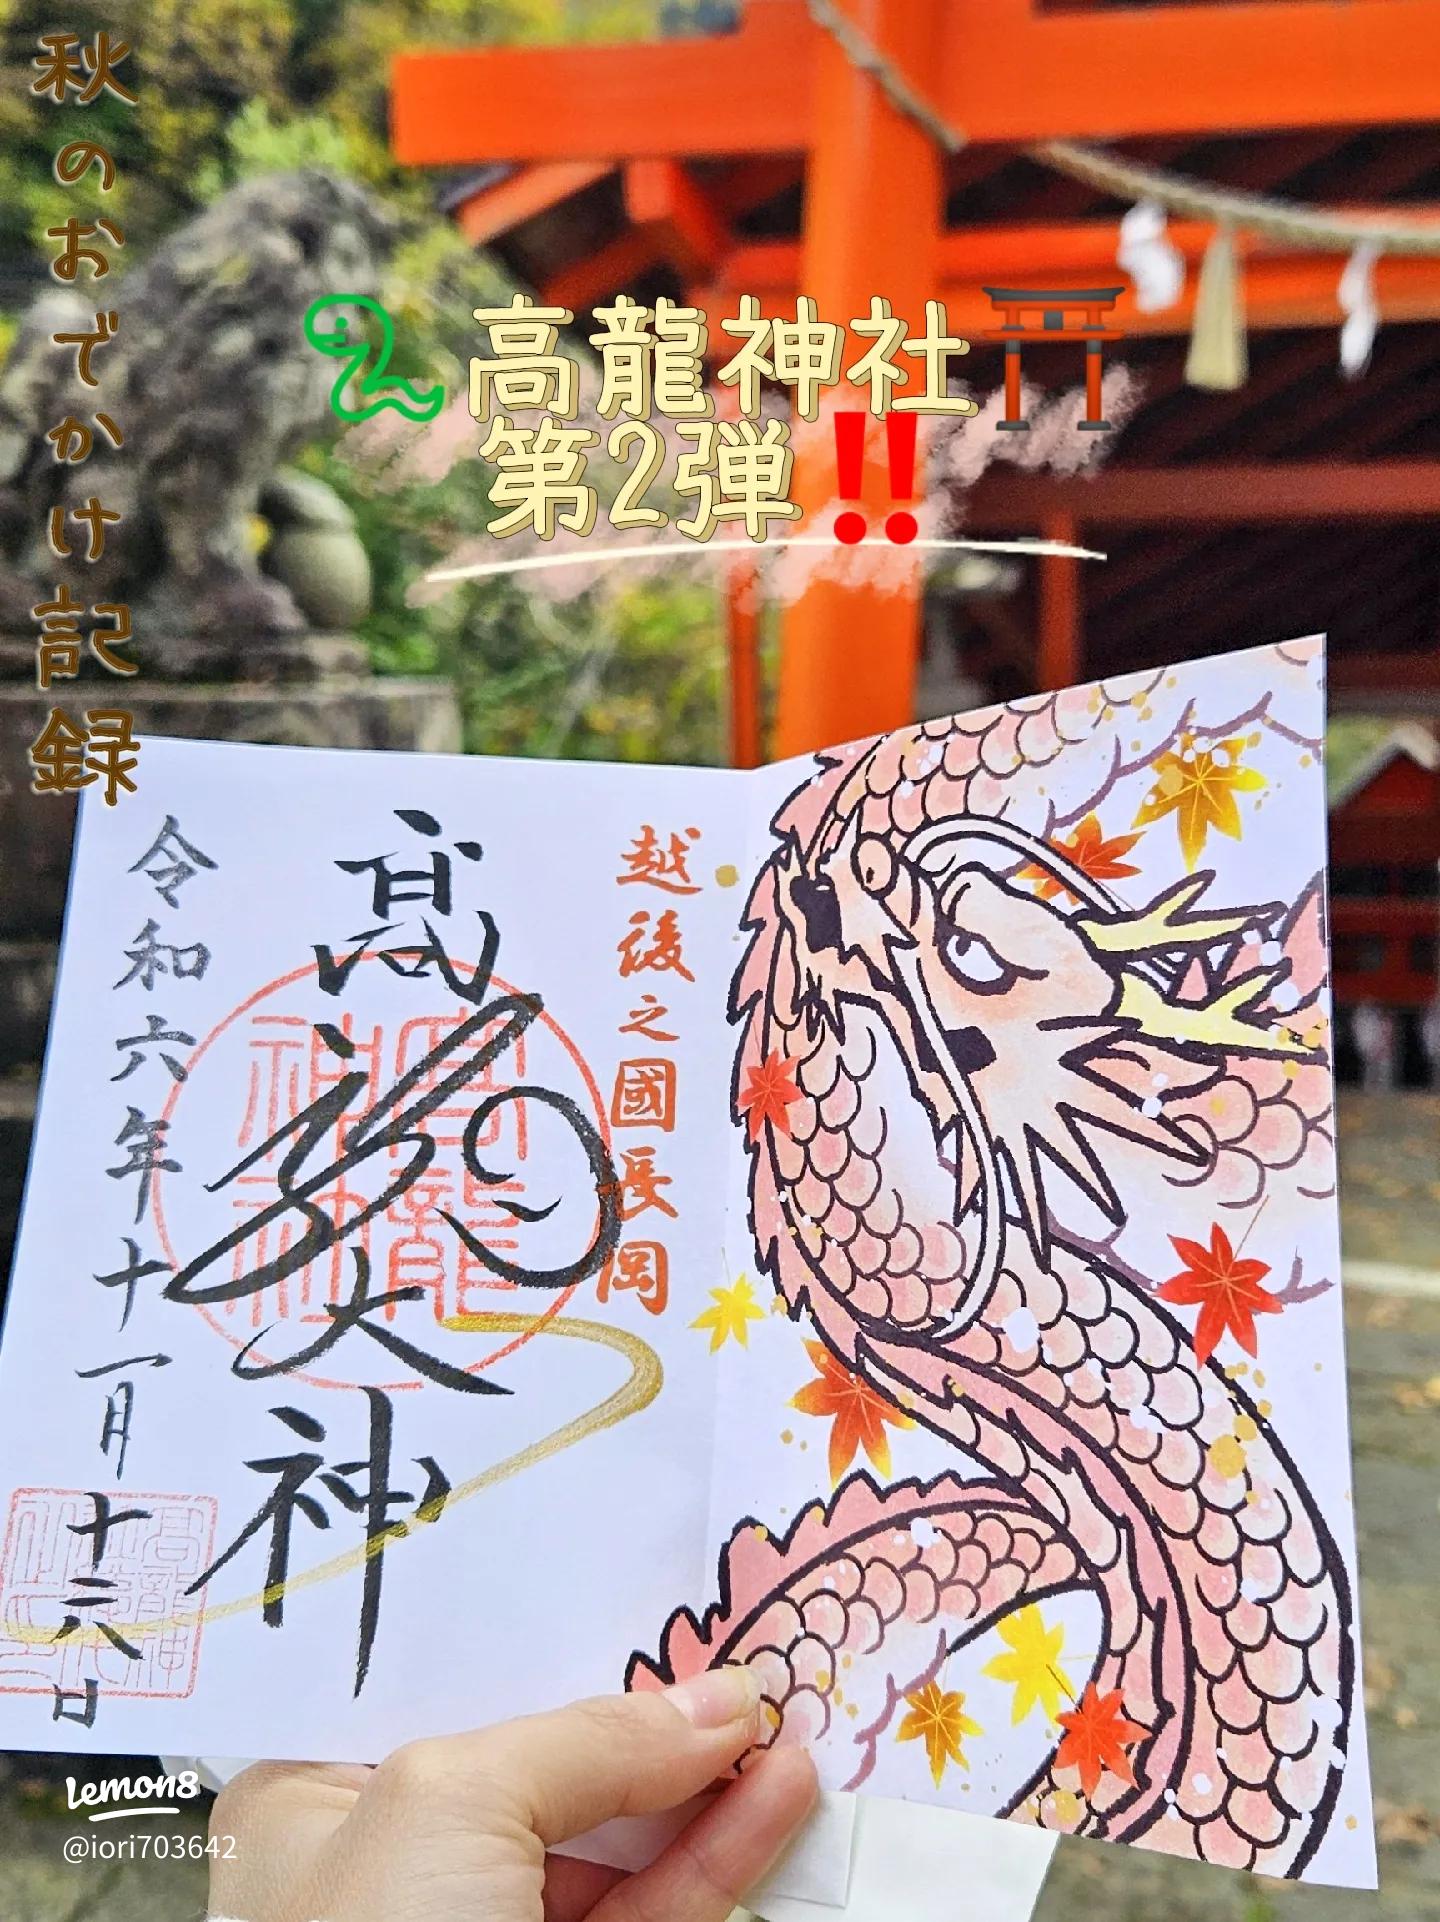 秋のおでかけ記録
高龍神社
第2弾‼
越後之國長岡
高龍大神
令和六年十一月十六日
高龍
神社
lemon8
@iori703642